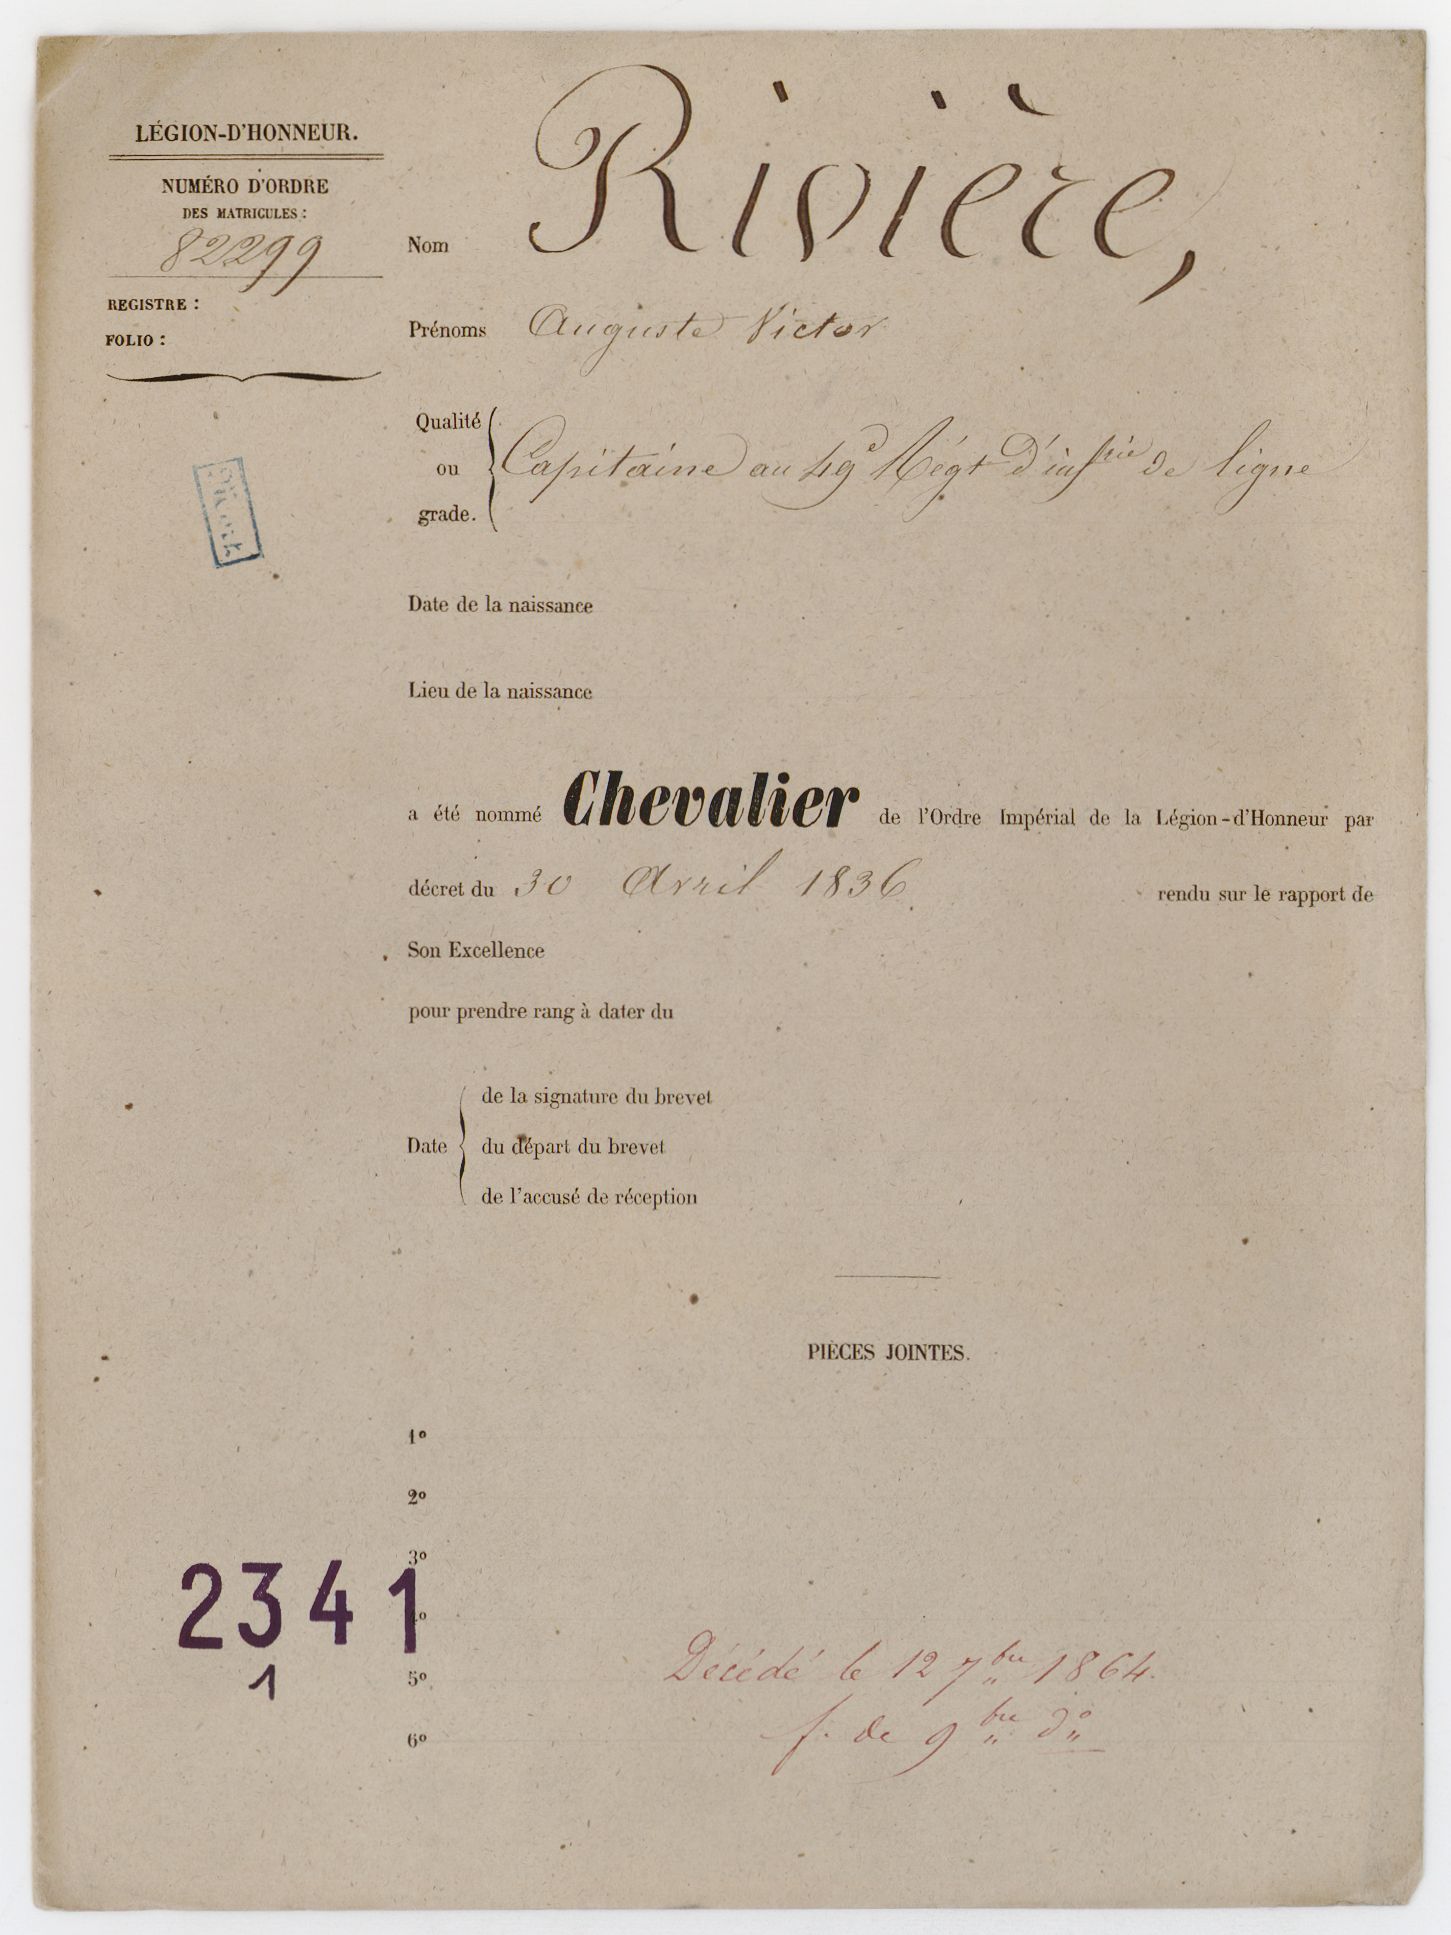 LÉGION-D'HONNEUR.
NUMÉRO D'ORDRE
DES MATRICULES :
82299
REGISTRE :
FOLIO :
Nom Rivière,
Prénoms Auguste Victor
Qualité
ou
grade.
Capitaine au 49e Régt d'infrie de ligne
Date de la naissance
Lieu de la naissance
a été nommé Chevalier de l'Ordre Impérial de la Légion-d'Honneur par
décret du 30 Avril 1836 rendu sur le rapport de
Son Excellence
pour prendre rang à dater du
de la signature du brevet
Date du départ du brevet
de l'accusé de réception
PIÈCES JOINTES.
1º
2º
3º
2341
4º
5º
1
6º
Décédé le 12 7bre 1864.
f. de 9bre do